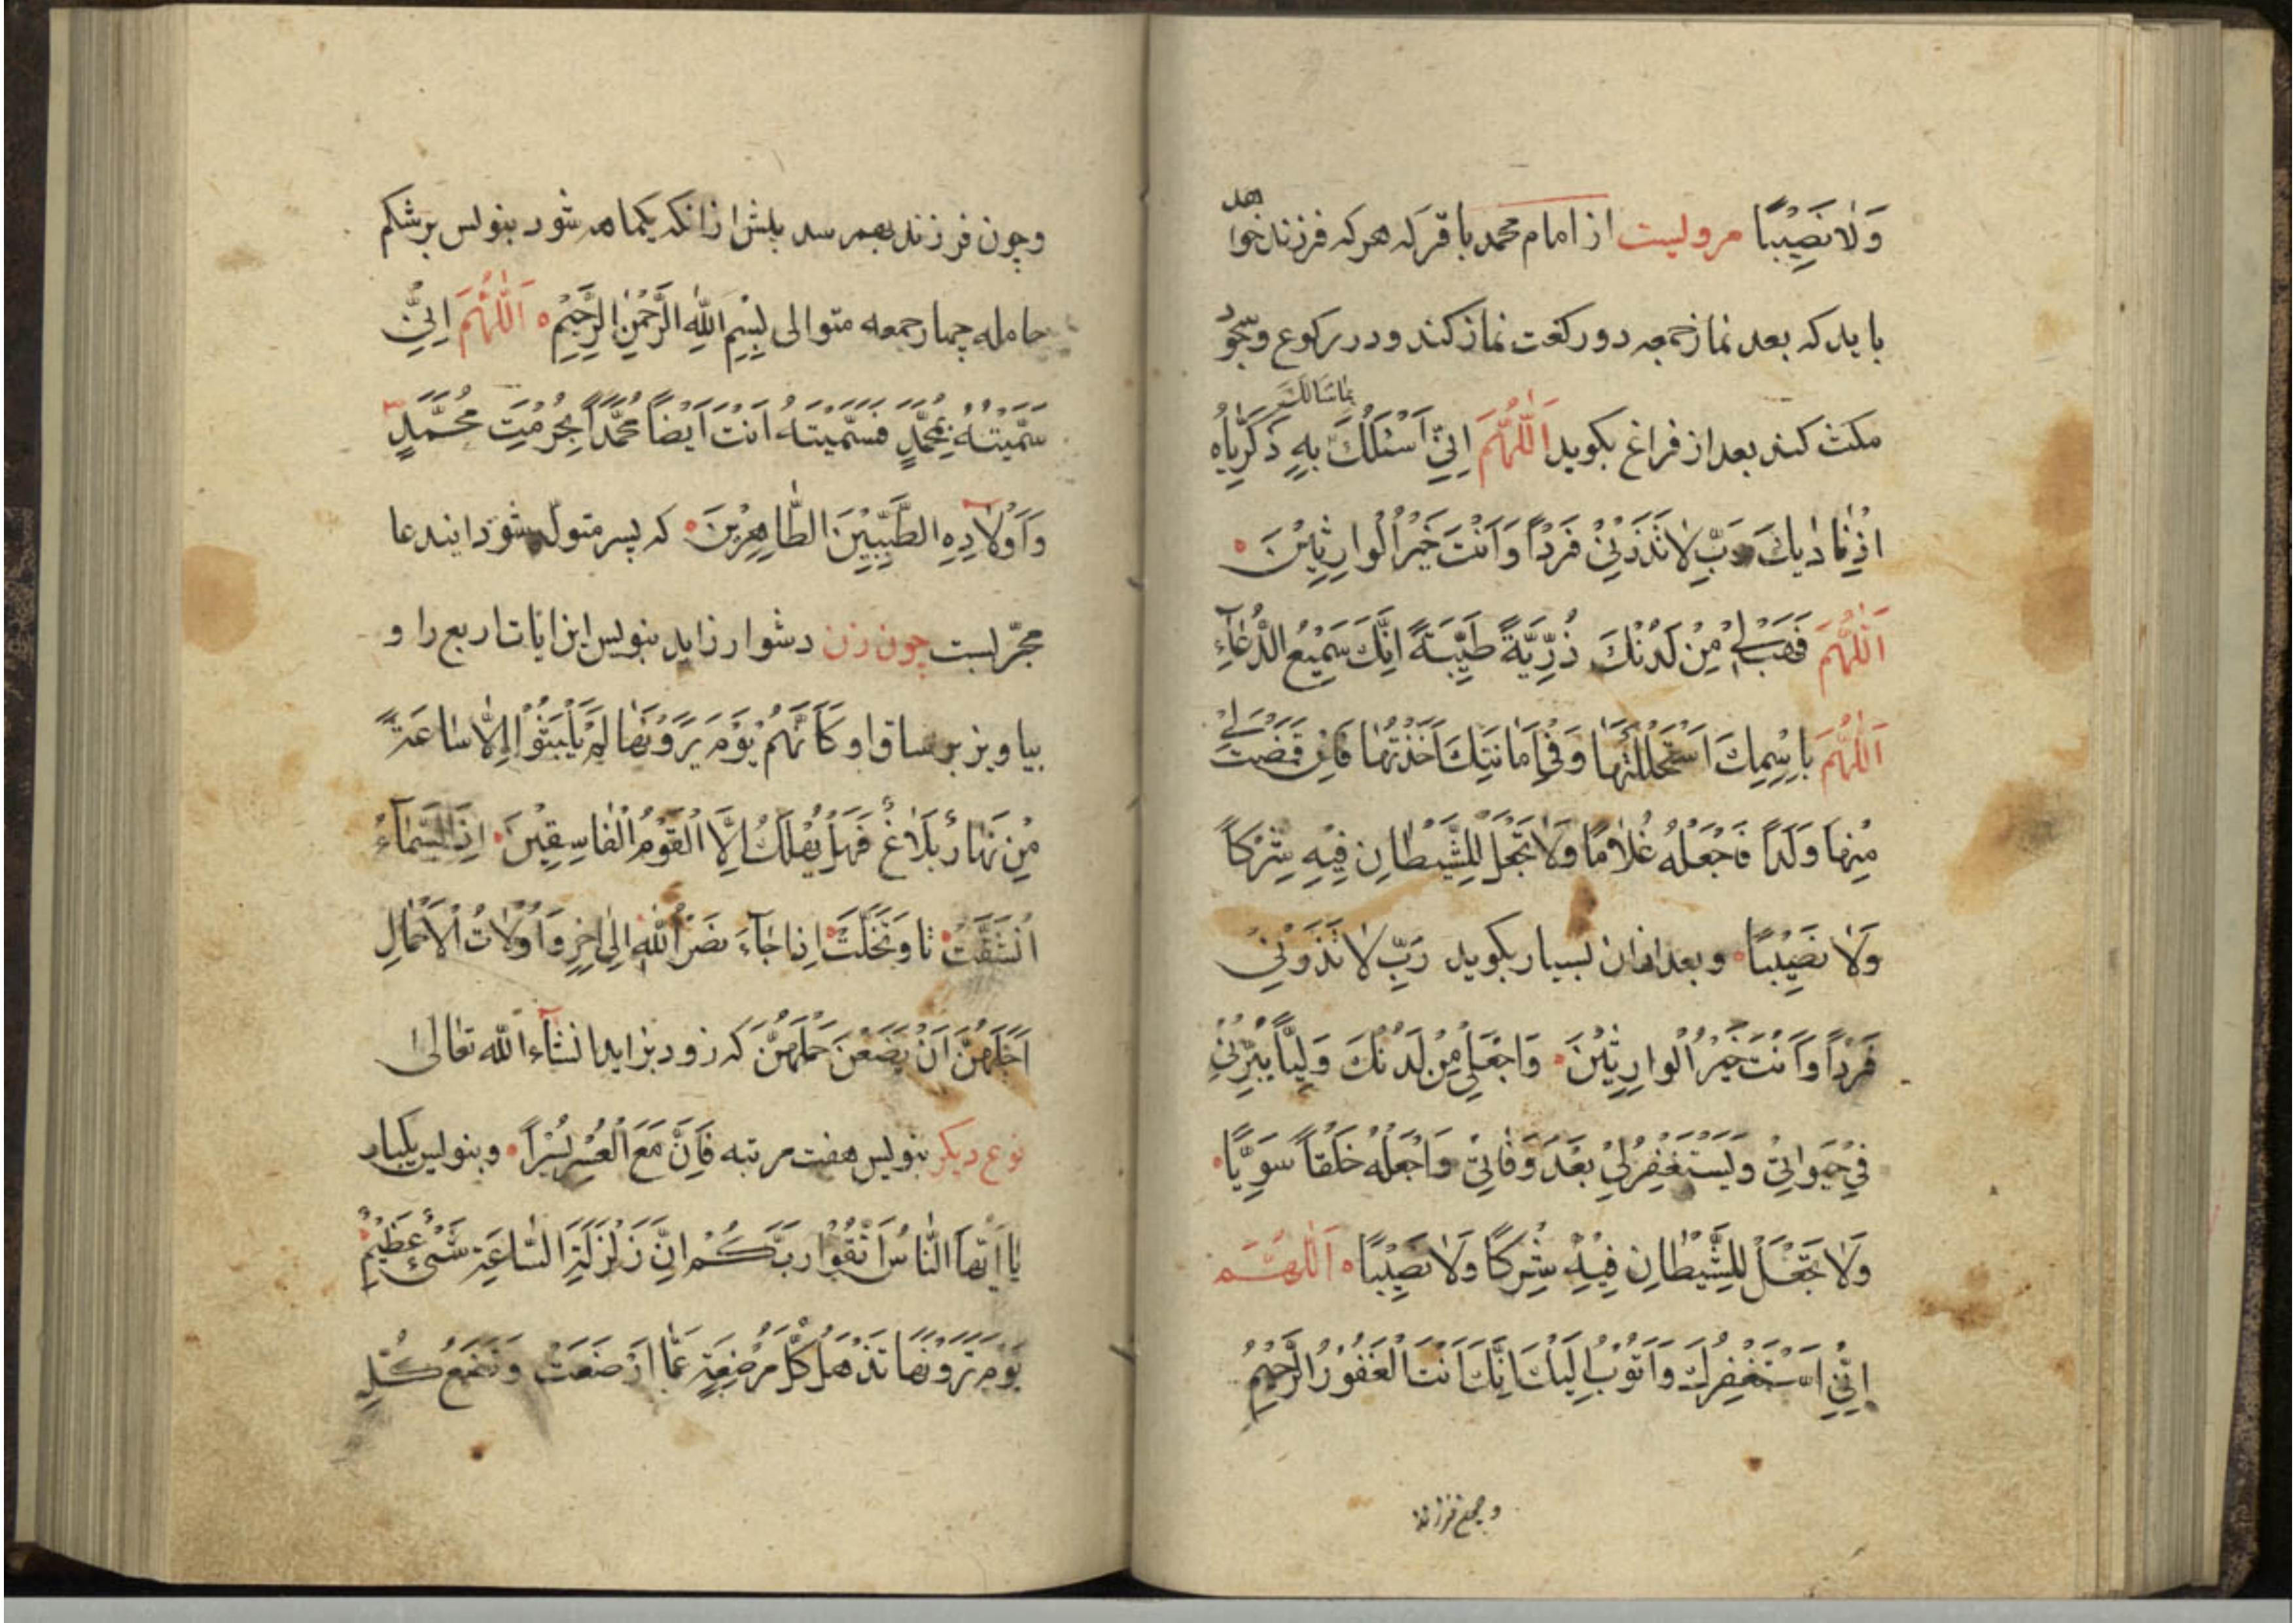 وَلَا نَصِيبًا مرویست از امام محمد باقر که هر که فرزند خواهد
باید که بعد نماز جمعه دو رکعت نماز کند و در رکوع و سجود
مکث کند بعد از فراغ بکوید اَللّٰهُمَّ اِنِّي اَسْئَلُكَ بِمَا سَأَلَكَ بِهِ ذَكَرِيَّاهُ
اِذْ نَادَيٰكَ رَبِّ لَا تَذَرْنِيْ فَرْدًا وَاَنْتَ خَيْرُ الْوَارِثِيْنَ
اَللّٰهُمَّ فَهَبْ لِيْ مِنْ لَدُنْكَ ذُرِّيَّةً طَيِّبَةً اِنَّكَ سَمِيْعُ الدُّعَآءِ
اَللّٰهُمَّ بِاِسْمِكَ اسْتَحْلَلْتُهَا وَفِيْ اَمَانَتِكَ اَخَذْتُهَا فَاِنْ قَضَيْتَ لِيْ
مِنْهَا وَلَدًا فَاجْعَلْهُ غُلَامًا وَلَا تَجْعَلْ لِلشَّيْطَانِ فِيْهِ شِرْكًا
وَلَا نَصِيْبًا وبعد ازان بسیار بکوید رَبِّ لَا تَذَرْنِيْ
فَرْدًا وَاَنْتَ خَيْرُ الْوَارِثِيْنَ وَاجْعَلْ لِيْ مِنْ لَدُنْكَ وَلِيًّا يَبَرُّنِيْ
فِيْ حَيٰوتِيْ وَيَسْتَغْفِرُ لِيْ بَعْدَ وَفَاتِيْ وَاجْعَلْهُ خَلَقًا سَوِيًّا
وَلَا تَجْعَلْ لِلشَّيْطَانِ فِيْهِ شِرْكًا وَلَا نَصِيْبًا اَللّٰهُمَّ
اِنِّيْ اَسْتَغْفِرُكَ وَاَتُوْبُ اِلَيْكَ اِنَّكَ اَنْتَ الْغَفُوْرُ الرَّحِيْمُ
فرزند
وچون فرزند بهم رسد پیش ازانکه یکماهه شود بنویس بر شکم
حامله چهار جمعه متوالی بِسْمِ اللّٰهِ الرَّحْمٰنِ الرَّحِيْمِ اَللّٰهُمَّ اِنِّيْ
سَمَّيْتُهُ بِمُحَمَّدٍ فَسَمَّيْتَهُ اَنْتَ اَيْضًا مُحَمَّدًا بِحُرْمَتِ مُحَمَّدٍ
وَاَوْلَادِهِ الطَّيِّبِيْنَ الطَّاهِرِيْنَ که پسر متولد شود ایندعا
مجرّبست چون زن دشوار زاید بنویس این ایات اربع را و
بیاویز بر ساق او كَاَنَّهُمْ يَوْمَ يَرَوْنَهَا لَمْ يَلْبَثُوْا اِلَّا سَاعَةً
مِنْ نَهَارٍ بَلَاغٌ فَهَلْ يُهْلَكُ اِلَّا الْقَوْمُ الْفَاسِقِيْنَ اِذَا السَّمَآءُ
انْشَقَّتْ تا وَتَخَلَّتْ اِذَا جَآءَ نَصْرُ اللّٰهِ اِلٰى اٰخِرِ وَاُولَاتُ الْاَحْمَالِ
اَجَلُهُنَّ اَنْ يَضَعْنَ حَمْلَهُنَّ که زود بزاید انشآء اللّٰه تعالی
نوع دیکر بنویس هفت مرتبه فَاِنَّ مَعَ الْعُسْرِ يُسْرًا وبنویس یکبار
يَا اَيُّهَا النَّاسُ اتَّقُوْا رَبَّكُمْ اِنَّ زَلْزَلَةَ السَّاعَةِ شَيْءٌ عَظِيْمٌ
يَوْمَ تَرَوْنَهَا تَذْهَلُ كُلُّ مُرْضِعَةٍ عَمَّا اَرْضَعَتْ وَتَضَعُ كُلُّ